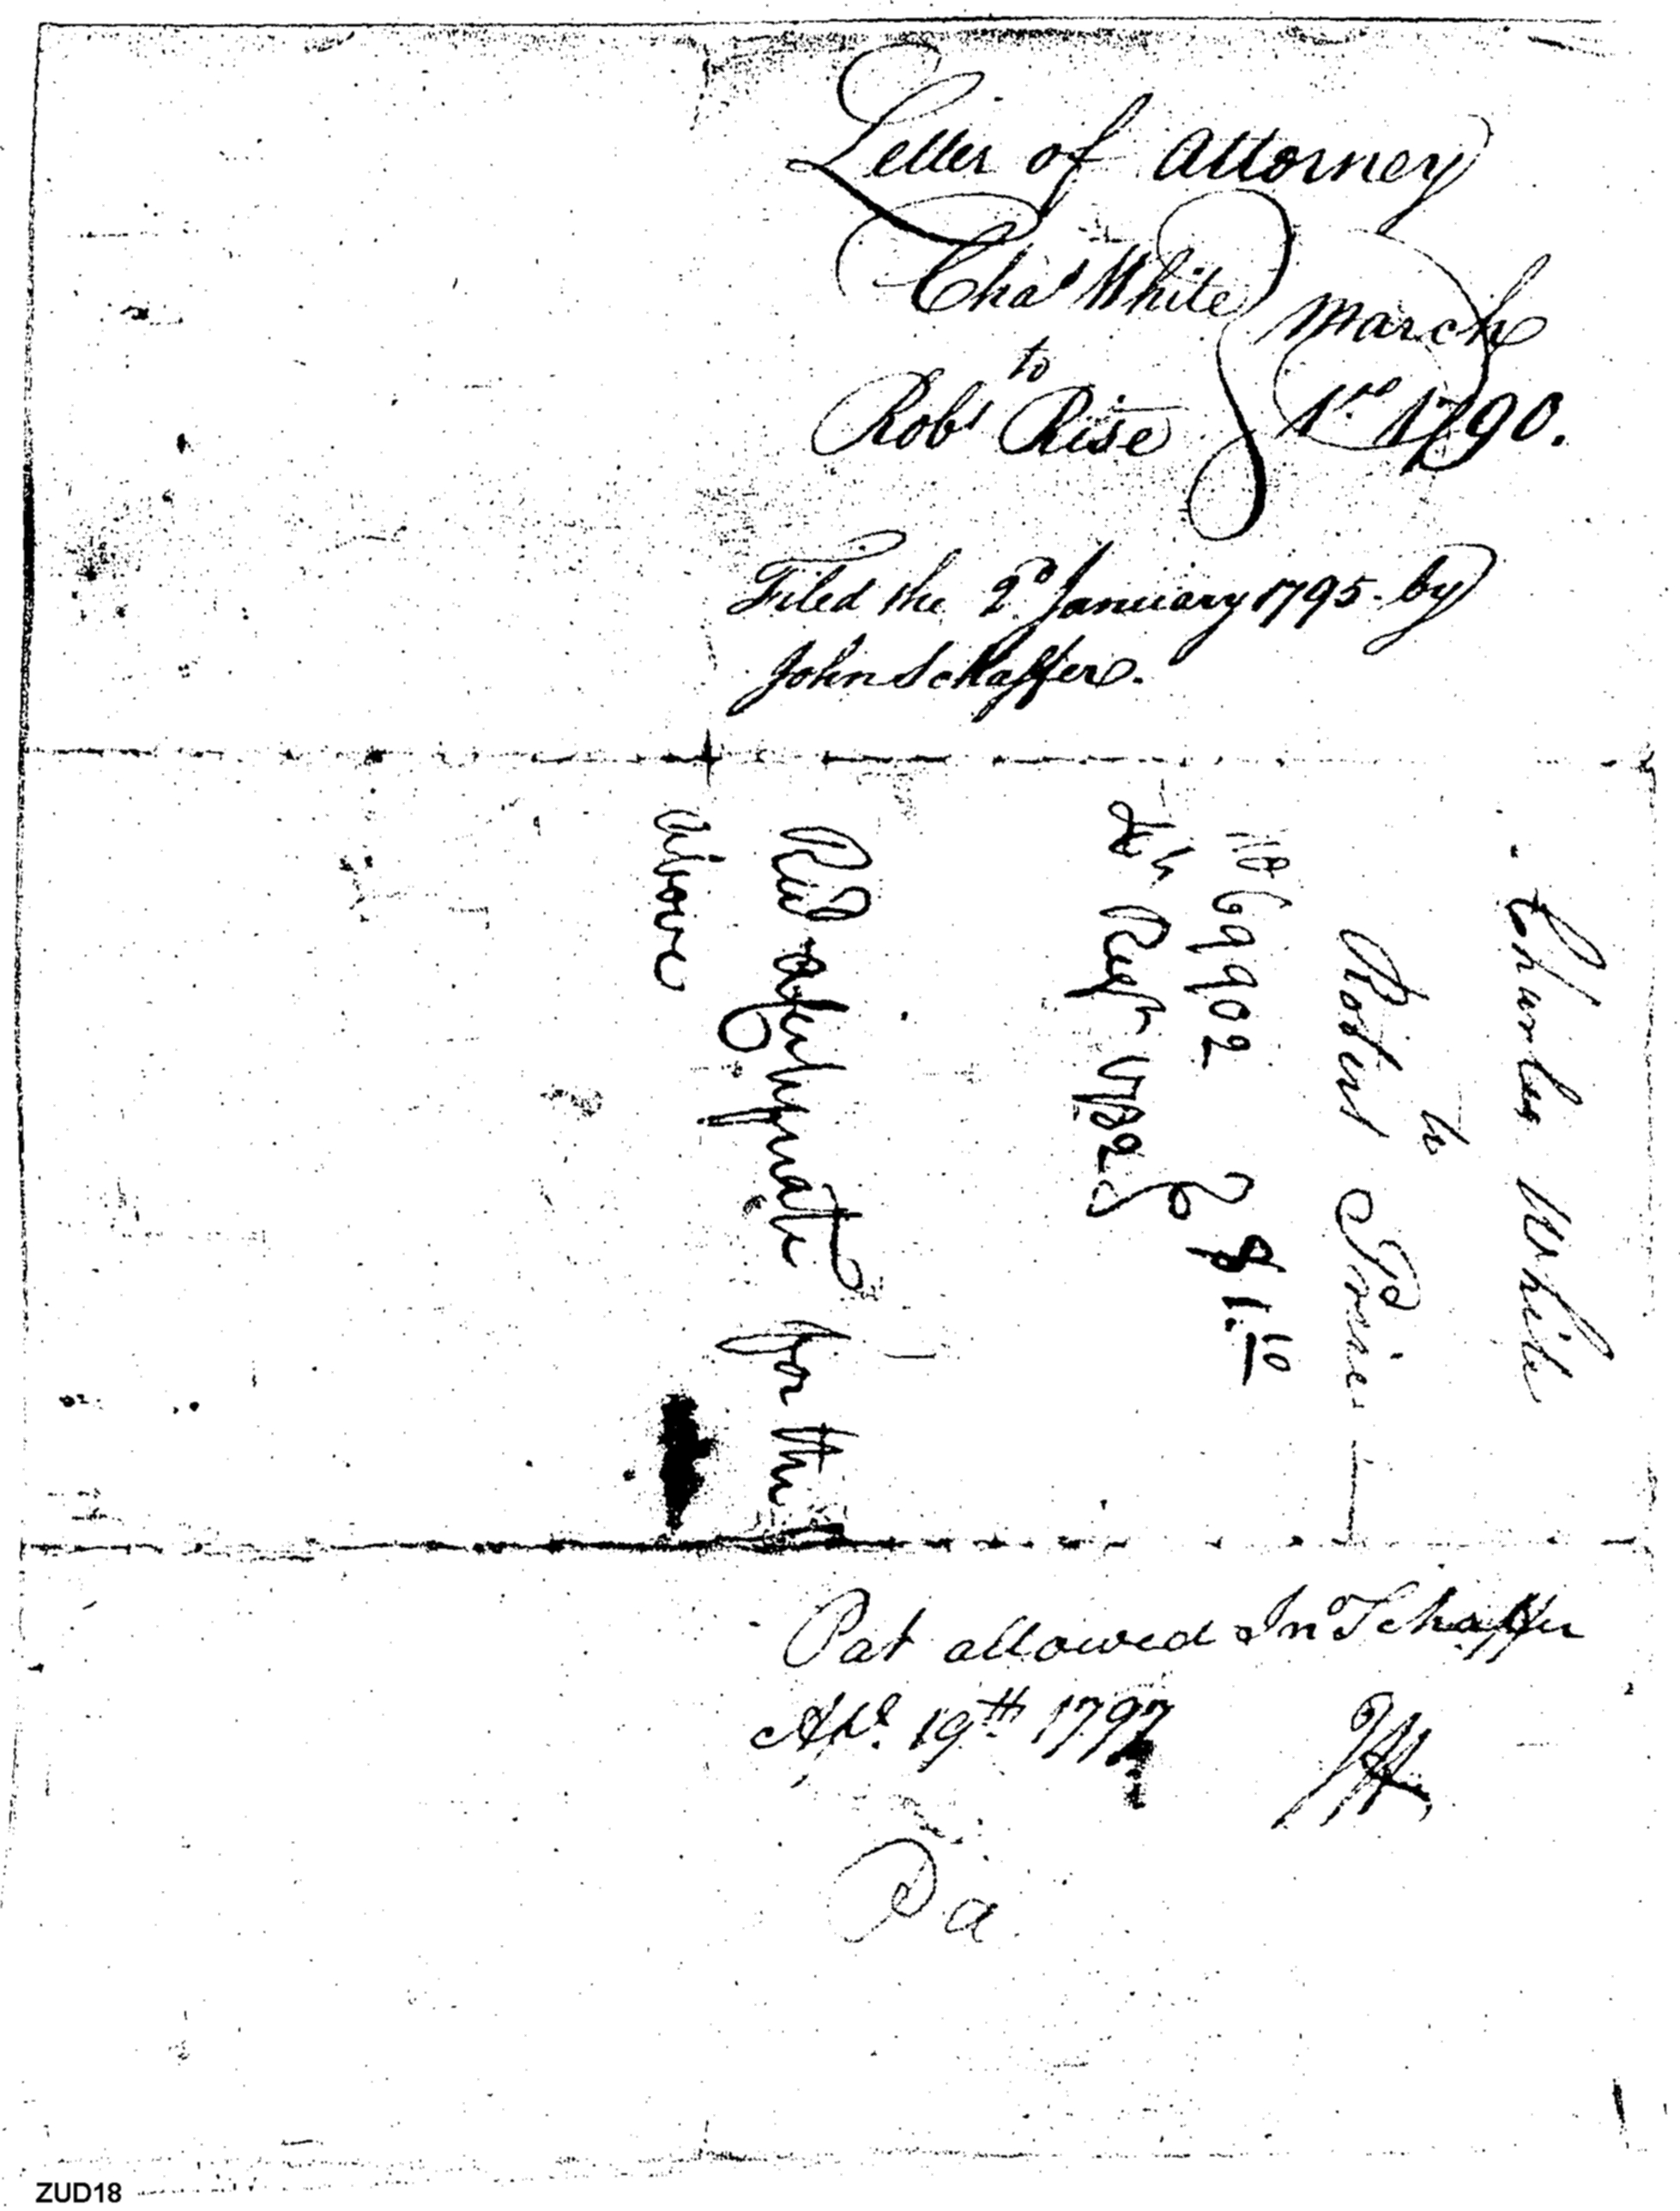 Letter of Attorney
Chas White
to
Robt Rise
March
1st 1790.
Filed the 2d January 1795. by
John Schaffer.
Charles White
to
Robert
No 69902
$ 1.10
Regr 1782
Recd for the
above
Pat allowed Jno Schaffer
Apl. 19th 1797
Pa
ZUD18